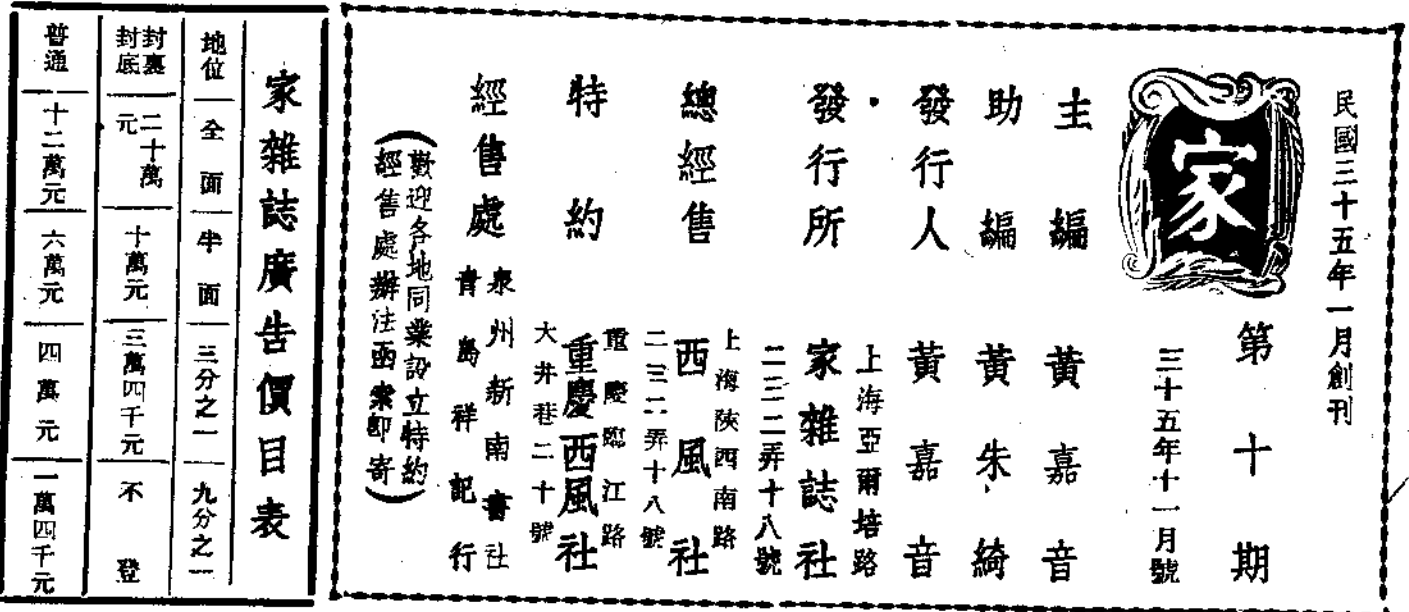 民國三十五年一月創刊
家
第十期
三十五年十一月號
主編 黃嘉音
助編 黃朱綺
發行人 黃嘉音
發行所 家雜誌社
上海亞爾培路
二三二弄十八號
總經售 西風社
上海陝西南路
二三二弄十八號
特約 重慶西風社
重慶臨江路
大井巷二十號
經售處 泉州新南書社
青島祥記行
(歡迎各地同業設立特約
經售處辦法函索即寄)
家雜誌廣告價目表
地位 全面 半面 三分之一 九分之一
封裏封底 二十萬元 十萬元 三萬四千元 不登
普通 十二萬元 六萬元 四萬元 一萬四千元